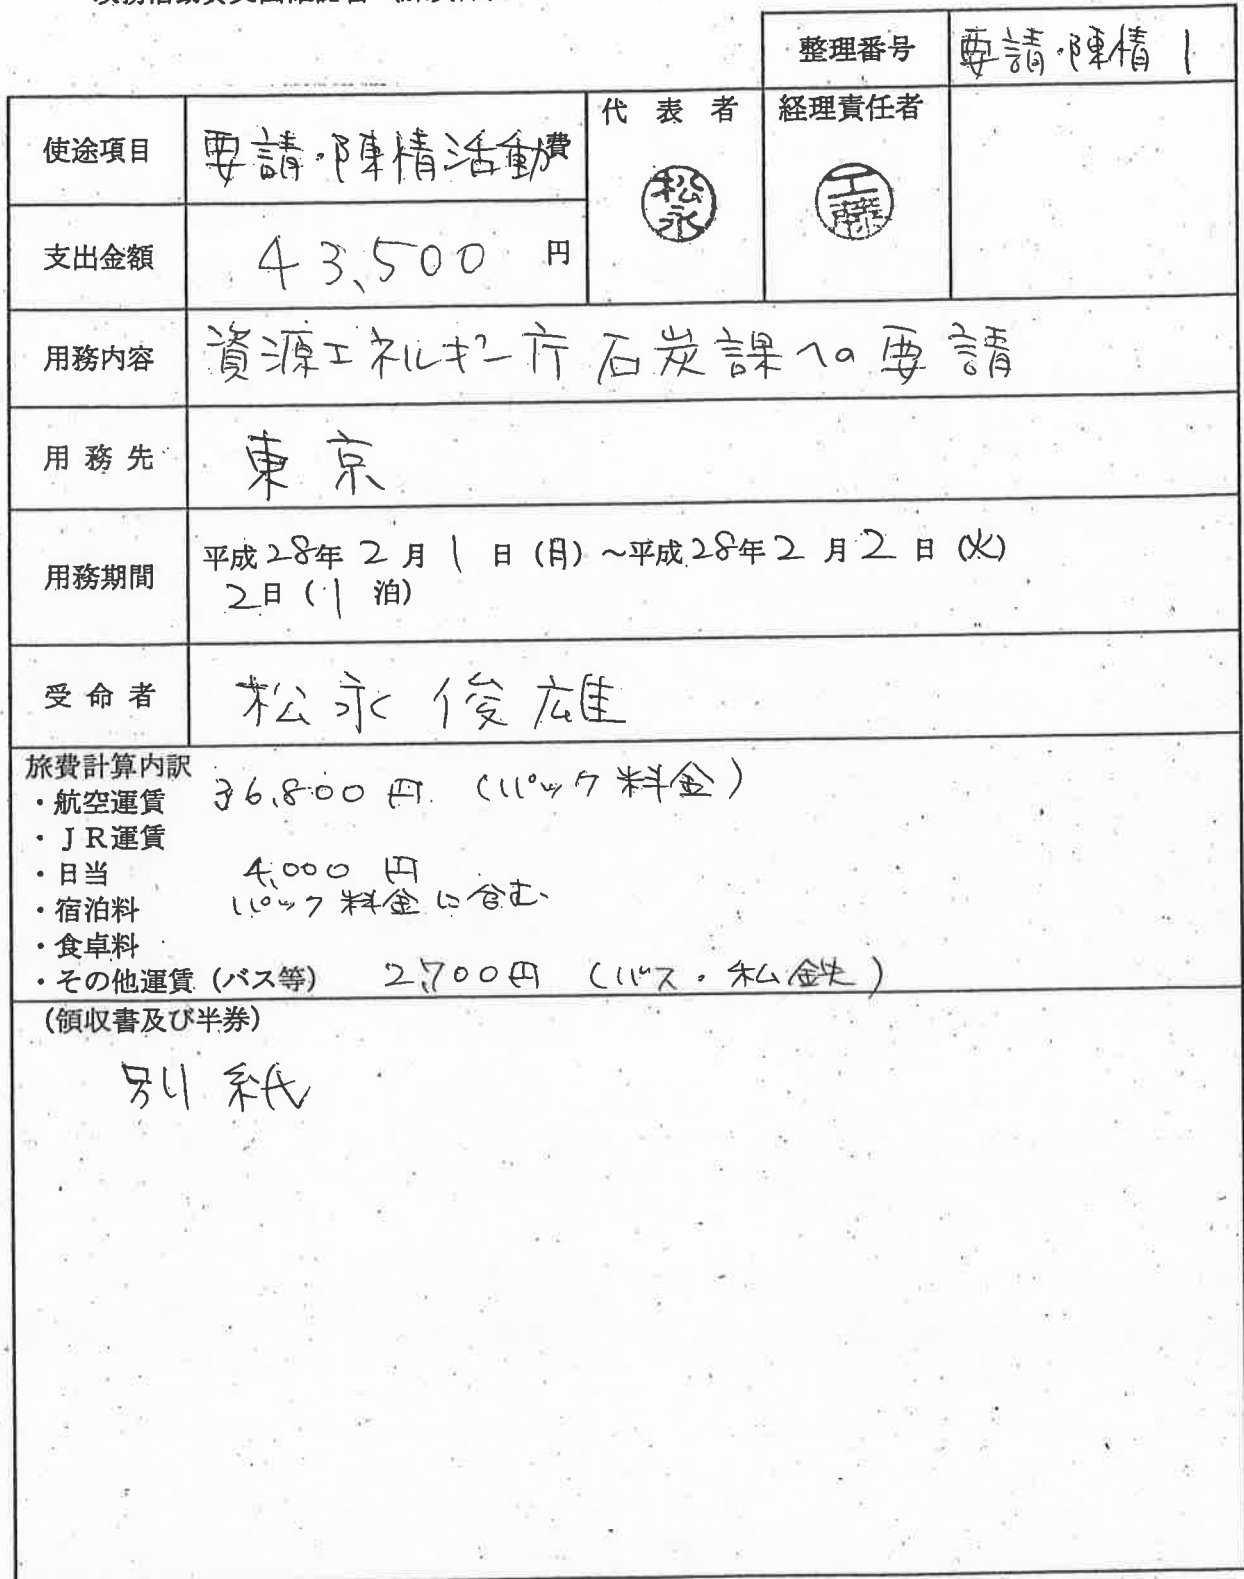 整理番号 要請・陳情 1
使途項目 要請・陳情活動費
代表者 経理責任者
松永
工藤
支出金額 43,500 円
用務内容 資源エネルギー庁 石炭課への要請
用務先 東京
用務期間 平成28年 2月 1日(月)~平成28年 2月 2日(火)
2日(1泊)
受命者 松永俊雄
旅費計算内訳
・航空運賃 36,800円 (パック料金)
・JR運賃
・日当 4,000円
・宿泊料 パック料金に含む
・食卓料
・その他運賃(バス等) 2,700円 (バス・私鉄)
(領収書及び半券)
別紙